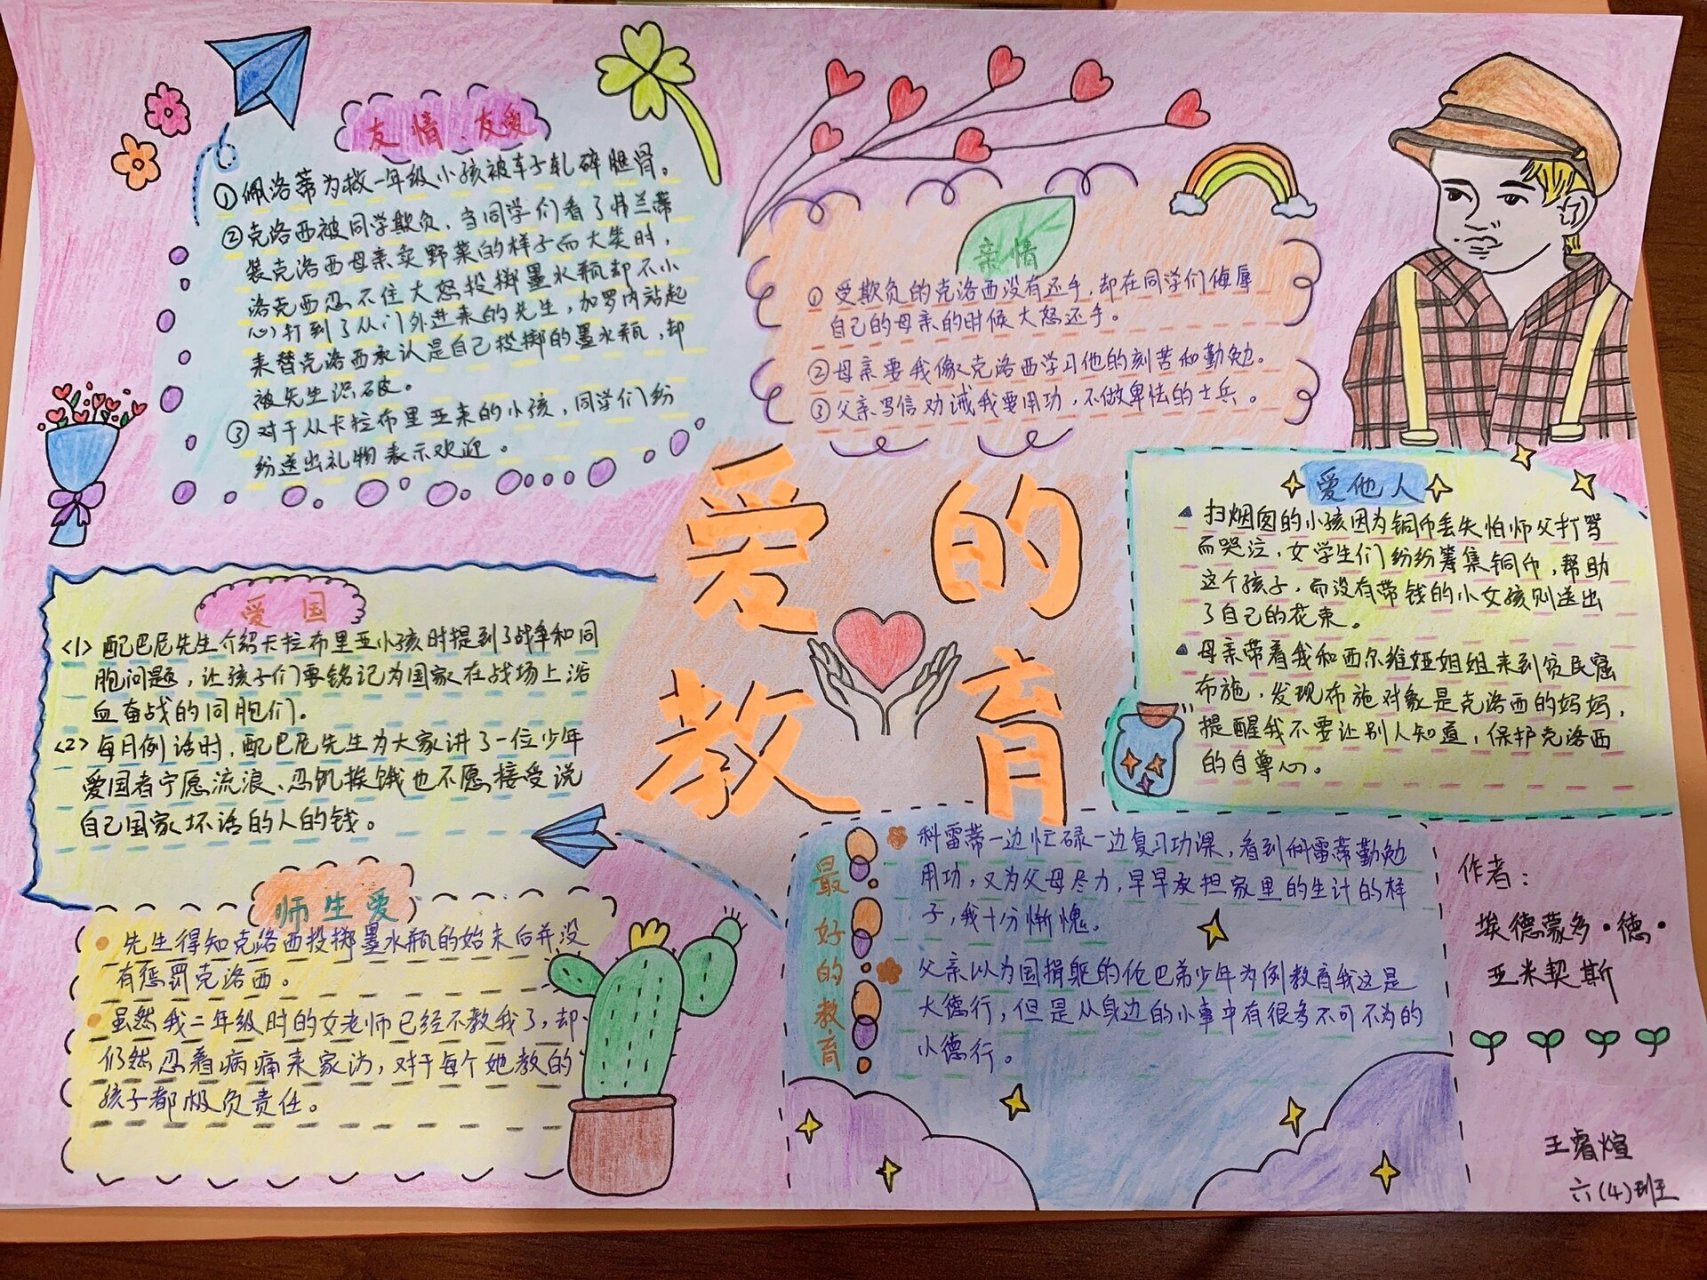 友情、友爱
①佩洛蒂为救一年级小孩被车子轧碎脚骨。
②克洛西被同学欺负，当同学们看了弗兰蒂
装克洛西母亲卖野菜的样子而大笑时，
洛克西忍不住大怒投掷墨水瓶却不小
心打到了从门外进来的先生，加罗内站起
来替克洛西承认是自己投掷的墨水瓶，却
被先生识破。
③对于从卡拉布里亚来的小孩，同学们纷
纷送出礼物表示欢迎。
亲情
①受欺负的克洛西没有还手，却在同学们侮辱
自己的母亲的时候大怒还手。
②母亲要我像克洛西学习他的刻苦和勤勉。
③父亲写信劝诫我要用功，不做卑怯的士兵。
爱的
教育
爱他人
扫烟囱的小孩因为铜币丢失怕师父打骂
而哭泣，女学生们纷纷筹集铜币，帮助
这个孩子，而没有带钱的小女孩则送出
了自己的花束。
母亲带着我和西尔维娅姐姐来到贫民窟
布施，发现布施对象是克洛西的妈妈，
提醒我不要让别人知道，保护克洛西
的自尊心。
爱国
<1>配巴尼先生介绍卡拉布里亚小孩时提到了战争和同
胞问题，让孩子们要铭记为国家在战场上浴
血奋战的同胞们。
<2>每月例话时，配巴尼先生为大家讲了一位少年
爱国者宁愿流浪、忍饥挨饿也不愿接受说
自己国家坏话的人的钱。
师生爱
先生得知克洛西投掷墨水瓶的始末后并没
有惩罚克洛西。
虽然我二年级时的女老师已经不教我了，却
仍然忍着病痛来家访，对于每个她教的
孩子都极负责任。
最好的教育
科雷蒂一边忙碌一边复习功课，看到科雷蒂勤勉
用功，又为父母尽力，早早承担家里的生计的样
子，我十分惭愧。
父亲以为国捐躯的伦巴弟少年为例教育我这是
大德行，但是从身边的小事中有很多不可不为的
小德行。
作者：
埃德蒙多·德·
亚米契斯
王睿煊
六(4)班